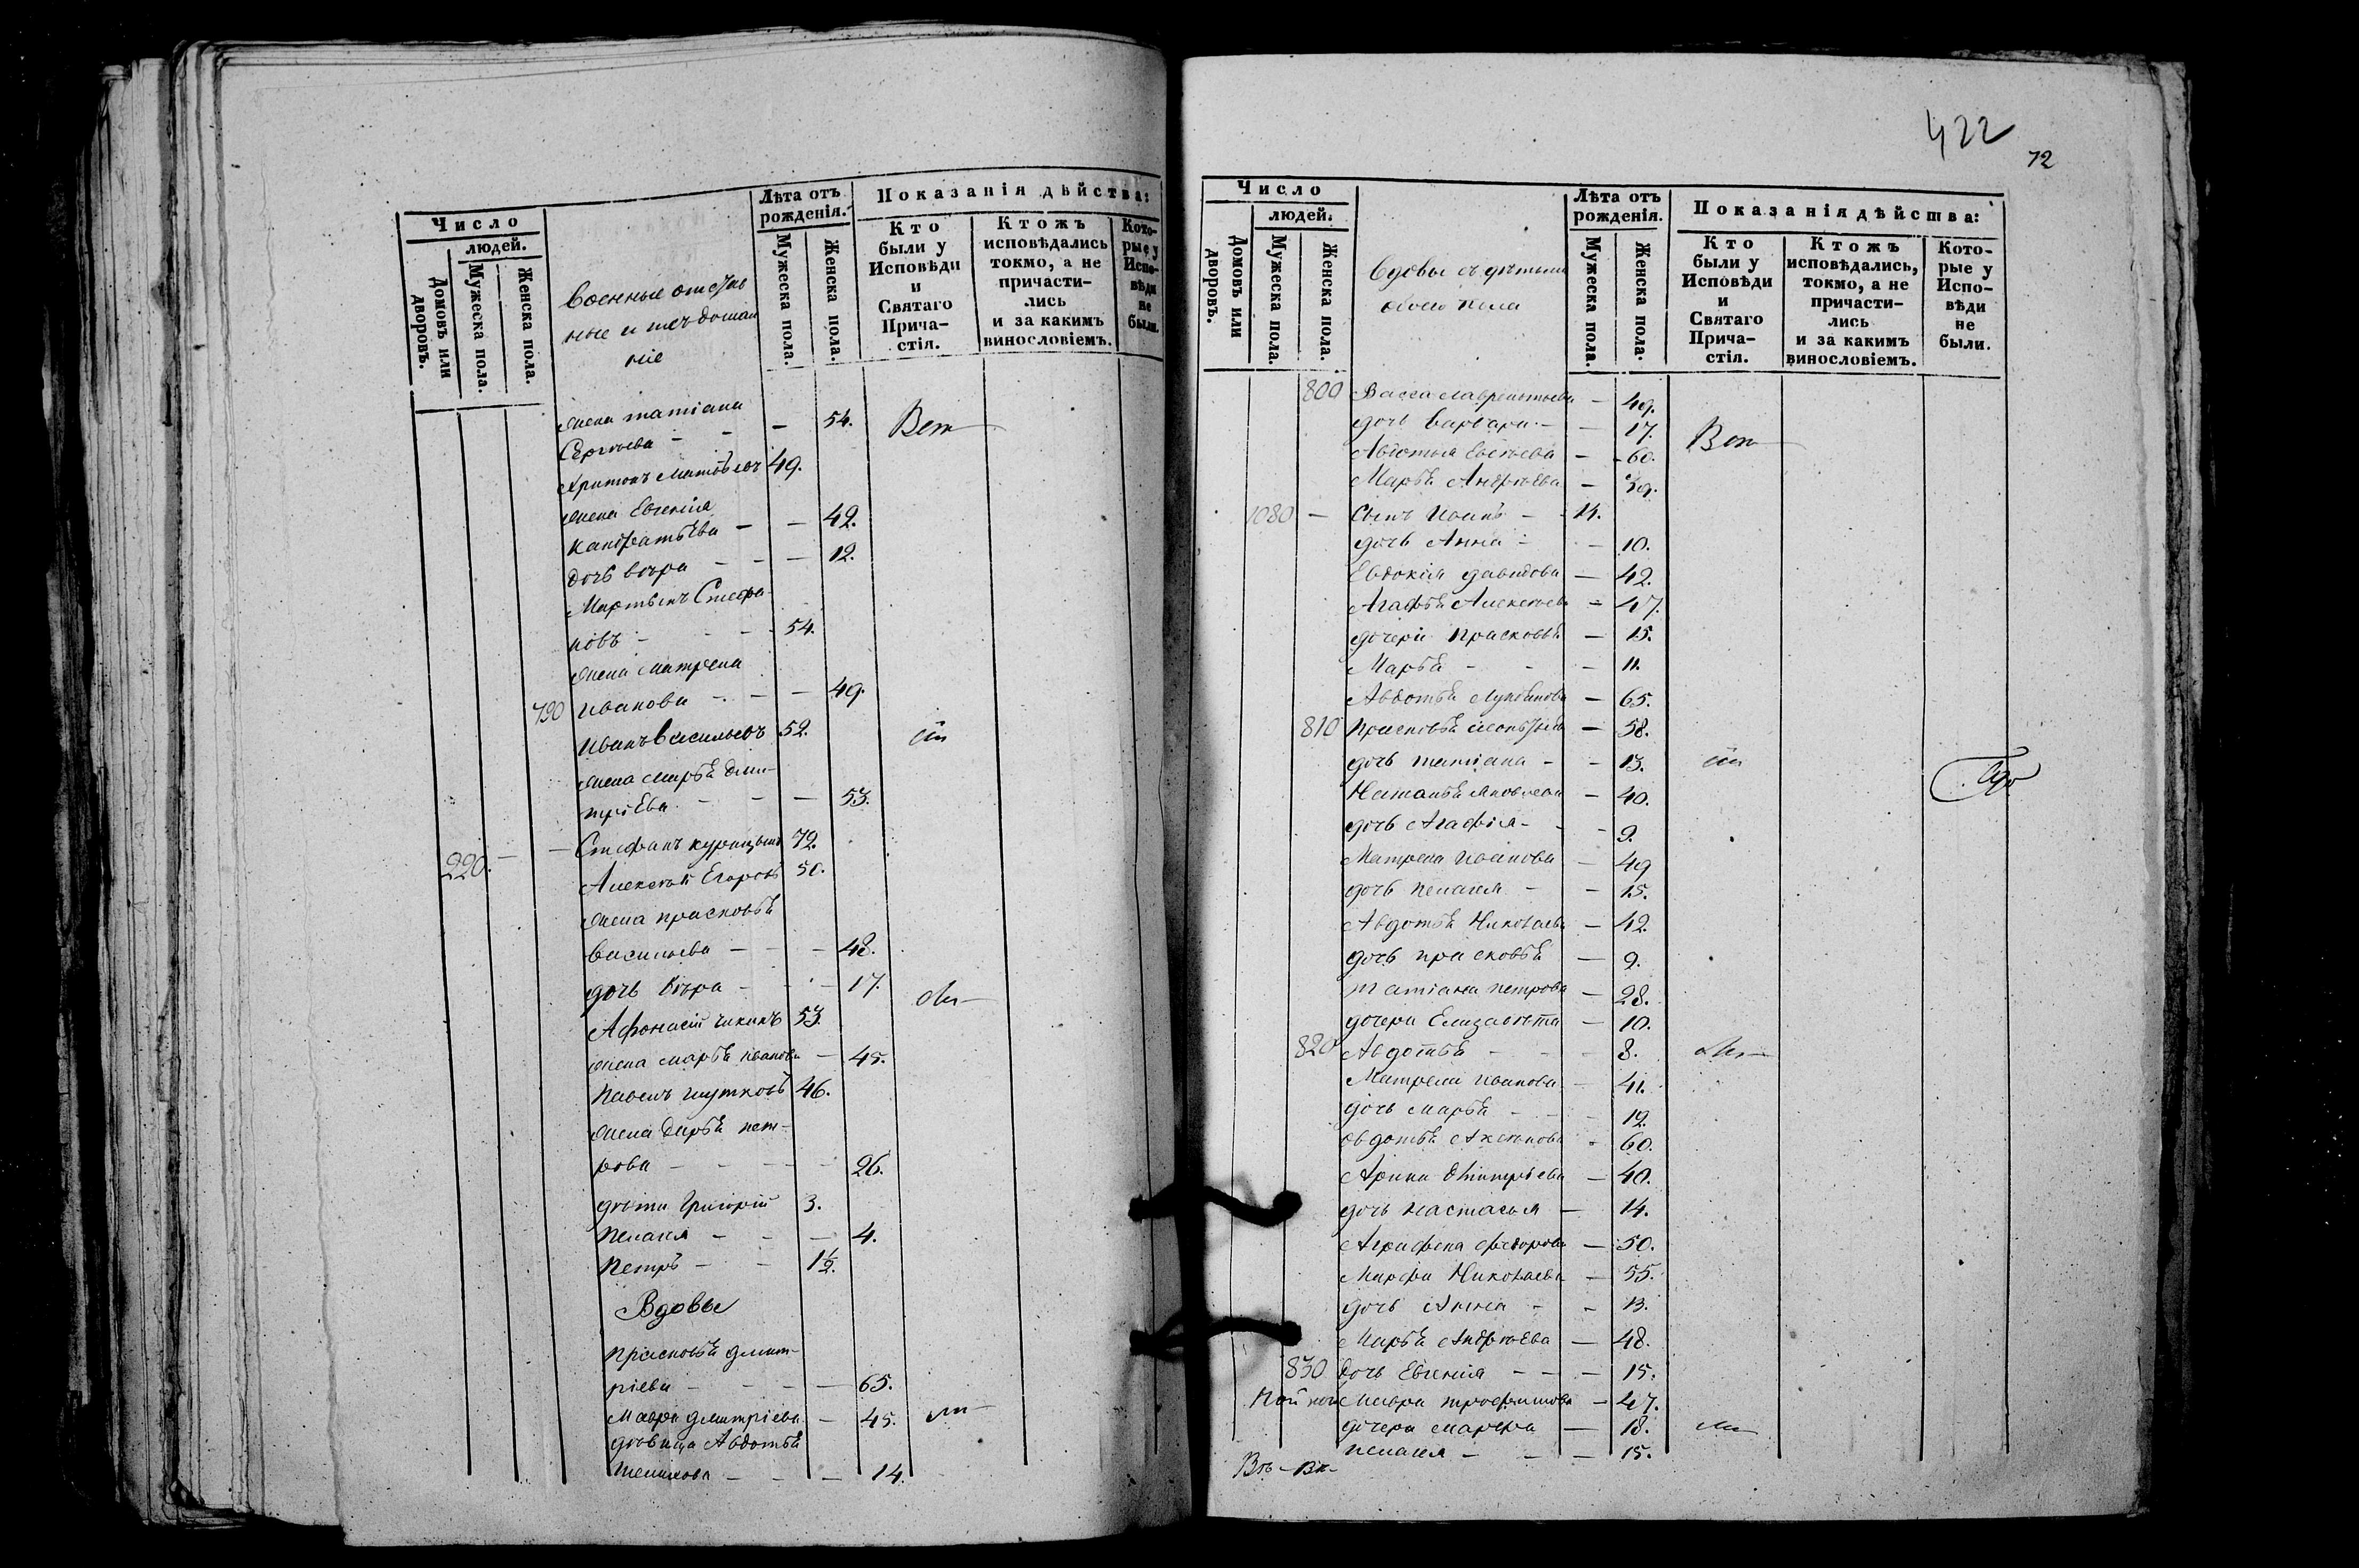 Число
людей.
Домовъ или дворовъ.
Мужеска пола.
Женска пола.
Военные отстав
ные и ихъ домаш
ніе
Лѣта отъ
рожденія.
Мужеска пола.
Женска пола.
Показанія дѣйства:
Кто
были у
Исповѣди
и
Святаго
Прича-
стія.
Ктожъ
исповѣдались
токмо, а не
причасти-
лись
и за какимъ
винословіемъ.
Кото-
рые у
Испо-
вѣди
не
были.
жена татіана
Сергѣева - - - 54.
Харитонъ 49.
жена Евгенія
Кандратьева - - 42.
дочь вѣра - - - 12.
Мартынъ Стефа-
новъ - - - 54.
жена матрена
790 иванова - - - 49.
иванъ васильевъ 52.
жена марья дми-
тріева - - - 53.
220. - - Стефанъ курицынъ 72.
Алексѣй Егоровъ 50.
жена прасковья
васильева - - - 48.
дочь вѣра - - - 17.
Афонасій чикинъ 53.
жена марья иванова - 45.
павелъ шутковъ 46.
жена дарья пет-
рова - - - - 26.
дѣти григорій 3.
пелагея - - - 4.
петръ - - 1½.
Вдовы
прасковья дмит-
ріева - - - - 65.
мавра дмитріева - 45.
дѣвица Авдотья
- - - 14.
422
72
Число
людей.
Домовъ или дворовъ.
Мужеска пола.
Женска пола.
Вдовы съ дѣтьми
обоего пола
Лѣта отъ
рожденія.
Мужеска пола.
Женска пола.
Показанія дѣйства:
Кто
были у
Исповѣди
и
Святаго
Прича-
стія.
Ктожъ
исповѣдались,
токмо, а не
причасти-
лись
и за какимъ
винословіемъ.
Кото-
рые у
Испо-
вѣди
не
были.
800 Васса лаврентьева - 49.
дочь варвара - - 17.
Авдотья - 60.
Марья Андрѣева - 39.
1080 - Сынъ иванъ - 14.
дочь Анна - - 10.
Евдокія давыдова - 42.
Агафья Алексѣева - 47.
дочери прасковья - 15.
Марья - - - 11.
Авдотья лукьянова - 65.
810 прасковья - 58.
дочь татіана - - 13.
Наталья яковлева - 40.
дочь Агафія - - 9.
Матрена иванова - 49
дочь пелагея - - 15.
Авдотья Николаева - 42.
дочь прасковья - 9.
татіана петрова - 28.
дочери Елизавета - 10.
820 Авдотья - - - 8.
Матрена иванова - 41.
дочь марья - - - 12.
овдотья - 60.
Арина дмитріева - 40.
дочь настасья - 14.
Аграфена федорова - 50.
Марфа Николаева - 55.
дочь Анна - - 13.
Марья Андрѣева - 48.
830 дочь Евгенія - - - 15.
мавра трофимова - 47.
дочери марфа - 18.
пелагея - - - 15.